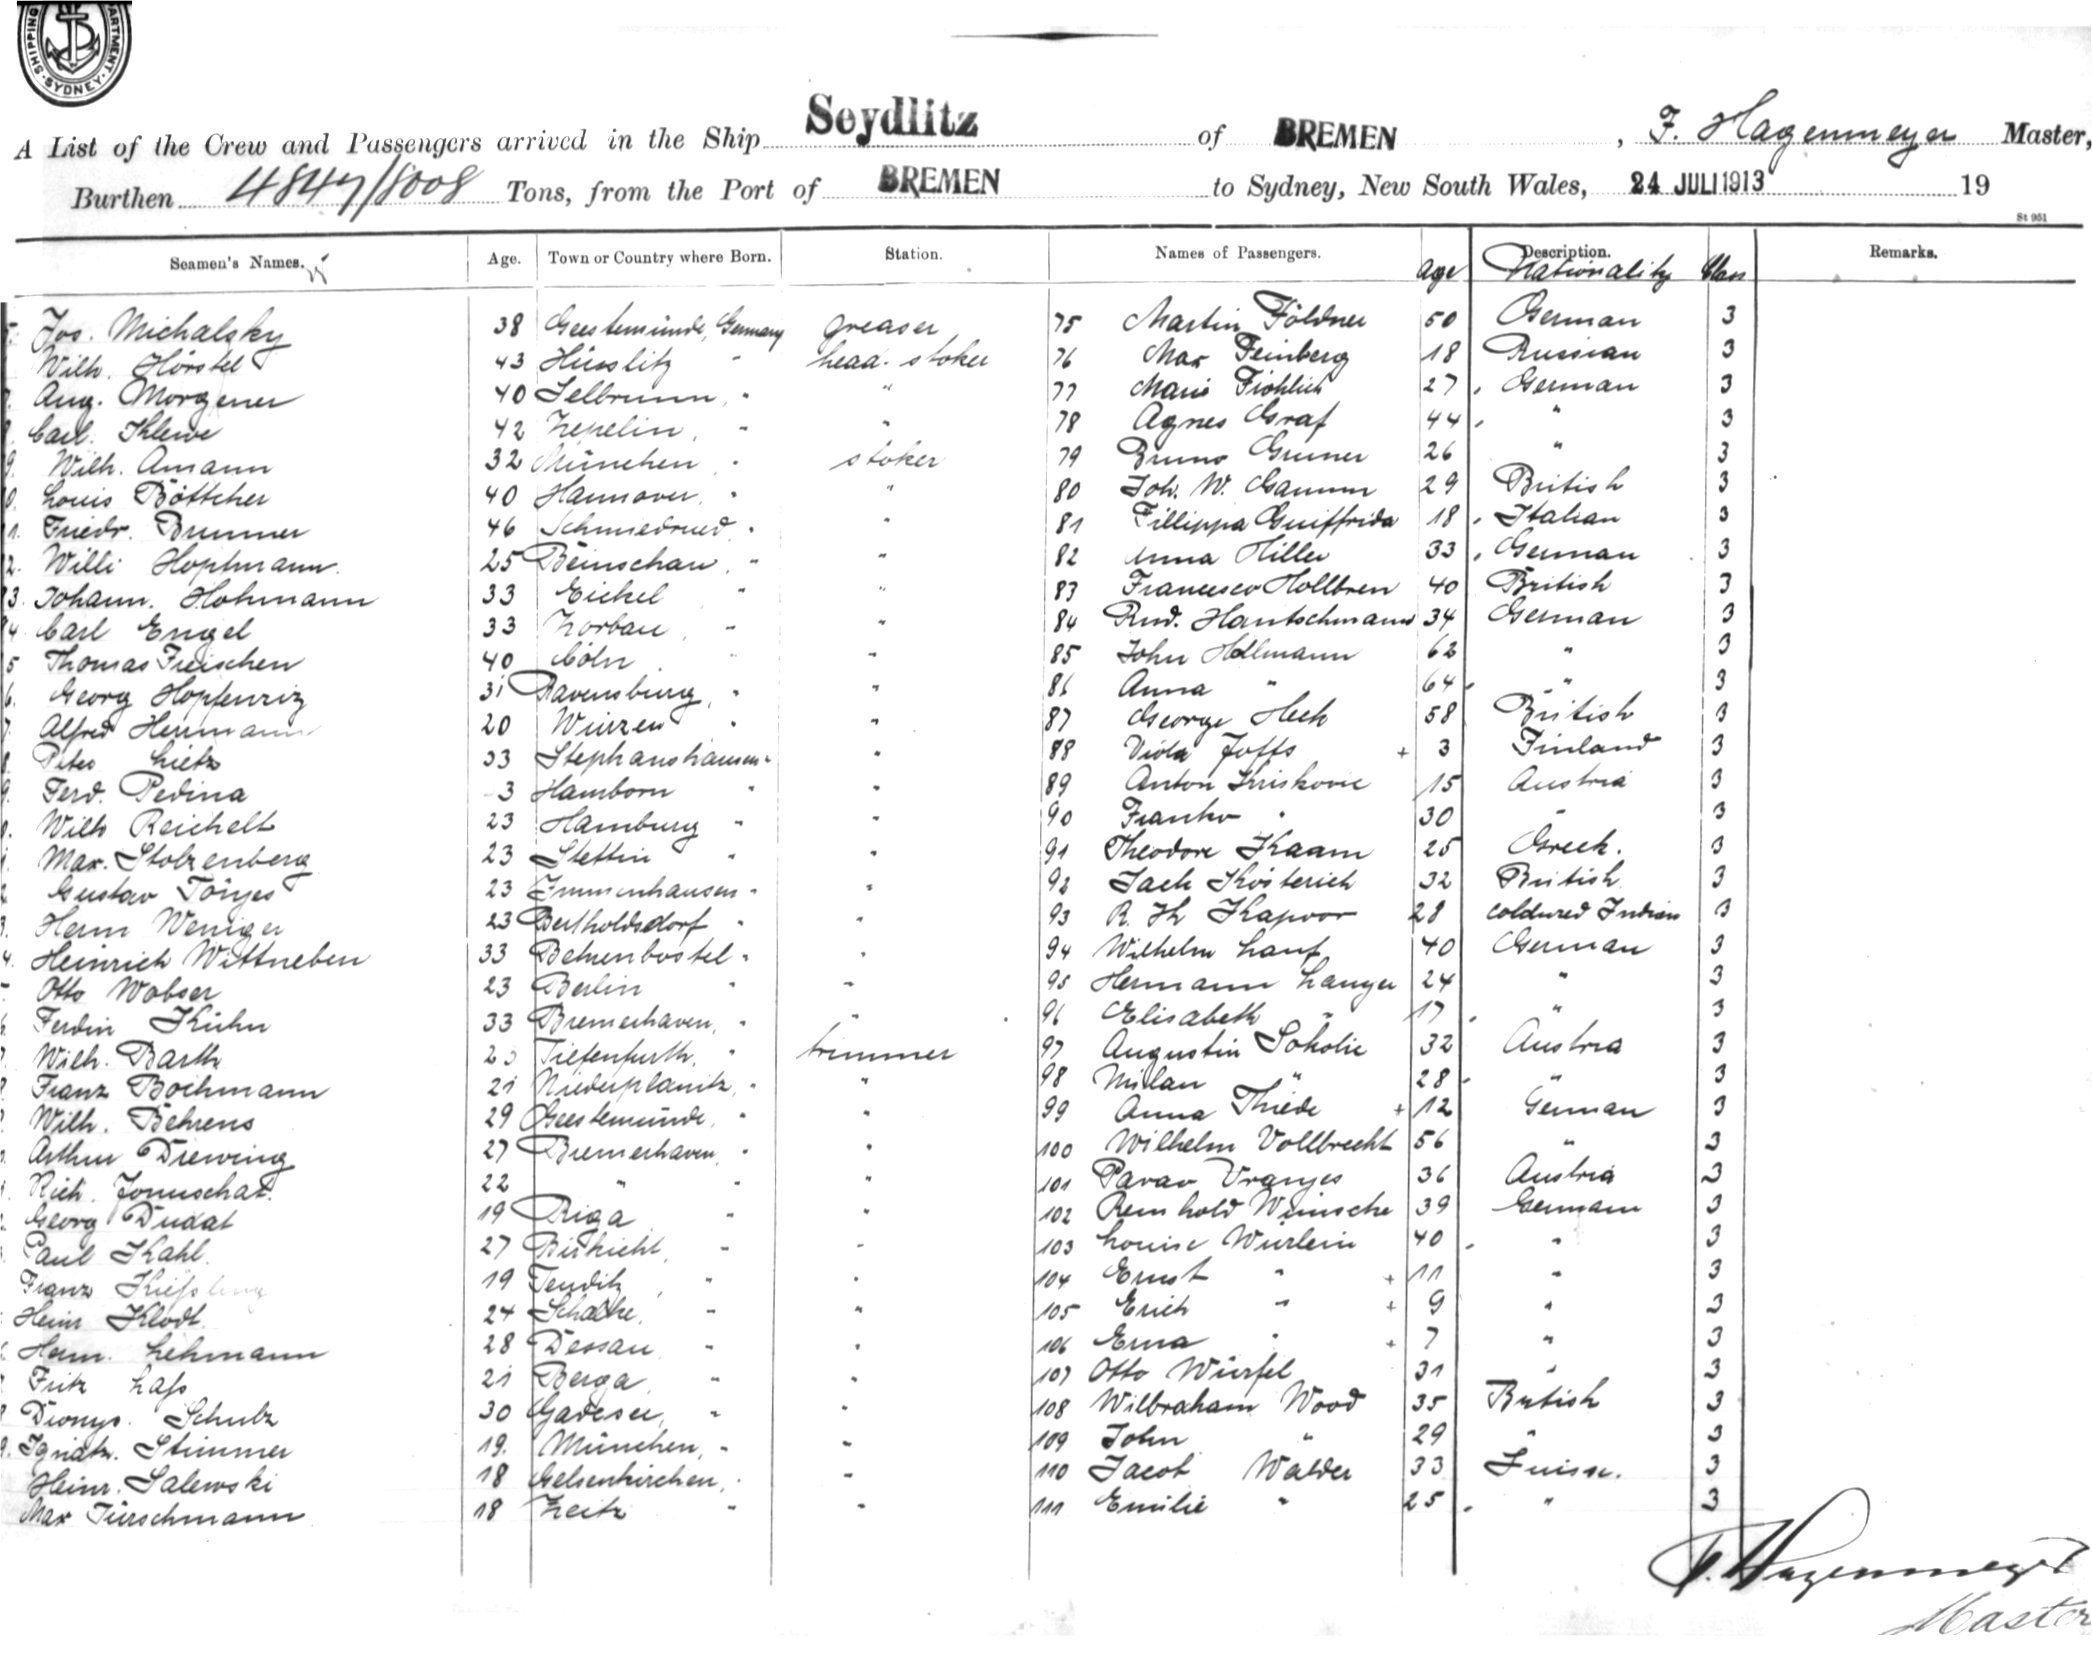 SHIPPING DEPARTMENT · SYDNEY
A List of the Crew and Passengers arrived in the Ship Seydlitz of BREMEN, F. Hagenmeyer Master,
Burthen 4847/8008 Tons, from the Port of BREMEN to Sydney, New South Wales, 24 JULI 1913 19
St 951
Seamen's Names. Age. Town or Country where Born. Station. Names of Passengers. Age Description. Nationality Class Remarks.
Jos. Michalsky 38 Geestemünde, Germany greaser 75 Martin Földner 50 German 3
Wilh. Hörstel 43 " head-stoker 76 Max Feinberg 18 Russian 3
Aug. Morgener 40 Selbrunn, " " 77 Marie Fröhlich 27 German 3
Carl. Klewe 42 Zepelin, " " 78 Agnes Graf 44 " 3
9. Wilh. Amann 32 München, " stoker 79 Bruno Gruner 26 " 3
0. Louis Böttcher 40 Hannover, " " 80 Joh. W. Gamm 29 British 3
1. Friedr. Brunner 46 Schmiedrued, " " 81 Fillippa Guiffrida 18 Italian 3
2. Willi Hoptmann. 25 " " 82 Anna Hiller 33 German 3
3. Johann. Hohmann 33 Eickel " " 83 Francesco Hollbren 40 British 3
4. Carl Engel 33 Zorbau, " " 84 Rud. Hantschmann 34 German 3
5 Thomas Freischen 40 Cöln " " 85 John Hellmann 62 " 3
6. Georg Hopfenziz 31 Ravensburg, " " 86 Anna " 64 " 3
7. Alfred Hermann 20 Wurzen " " 87 George Heck 58 British 3
8 Peter Lietz 33 Stephanshausen " " 88 Viola Joffs + 3 Finland 3
9. Ferd. Pedina 3 Hamborn " " 89 Anton Kriskovic 15 Austria 3
0. Wilh Reichelt 23 Hamburg " " 90 Franko " 30 " 3
Max. Stolzenberg 23 Stettin " " 91 Theodore Kaam 25 Greek. 3
Gustav Tönjes 23 Immenhausen " " 92 Jack Kösterich 32 British 3
3. Herm Weniger 23 Bertholdsdorf " " 93 R. Kh Kapoor 28 coloured Indian 3
4. Heinrich Wittneben 33 Behrenbostel " " 94 Wilhelm Lauf 40 German 3
Otto Wobser 23 Berlin " " 95 Hermann Langer 24 " 3
Ferdin Kühn 33 Bremerhaven, " " 96 Elisabeth " 17 " 3
Wilh. Barth Tiefenfurth, " trimmer 97 Augustin Sokolic 32 Austria 3
Franz Bochmann 21 Niederplanitz, " " 98 Milan " 28 " 3
Wilh. Behrens 29 Geestemünde, " " 99 Anna Thiede + 12 German 3
Arthur Drewing 27 Bremerhaven, " " 100 Wilhelm Vollbrecht 56 " 3
Rich. Jonuschat. 22 " " " 101 Pavao Vranjes 36 Austria 3
Georg Dudat 19 Riga " " 102 Reinhold Wünsche 39 German 3
Paul Kahl. 27 Birkicht, " " 103 Louise Würlein 40 " 3
Franz Kießling 19 Teuditz, " " 104 Ernst " + 11 " 3
Heinr Klodt. 24 Schalke, " " 105 Erich " + 9 " 3
Herm. Lehmann 28 Dessau " " 106 Erna " + 7 " 3
Fritz Laß 21 Berga, " " 107 Otto Würfel 31 " 3
Dionys. Schulz 30 " " 108 Wilbraham Wood 35 British 3
9. Ignatz. Stimmer 19. München, " " 109 John " 29 " 3
Heinr. Salewski 18 Gelsenkirchen, " " 110 Jacob Walder 33 Suisse. 3
Max Türschmann 18 Zeitz " " 111 Emilie " 25 " 3
F. Hagenmeyer
Master